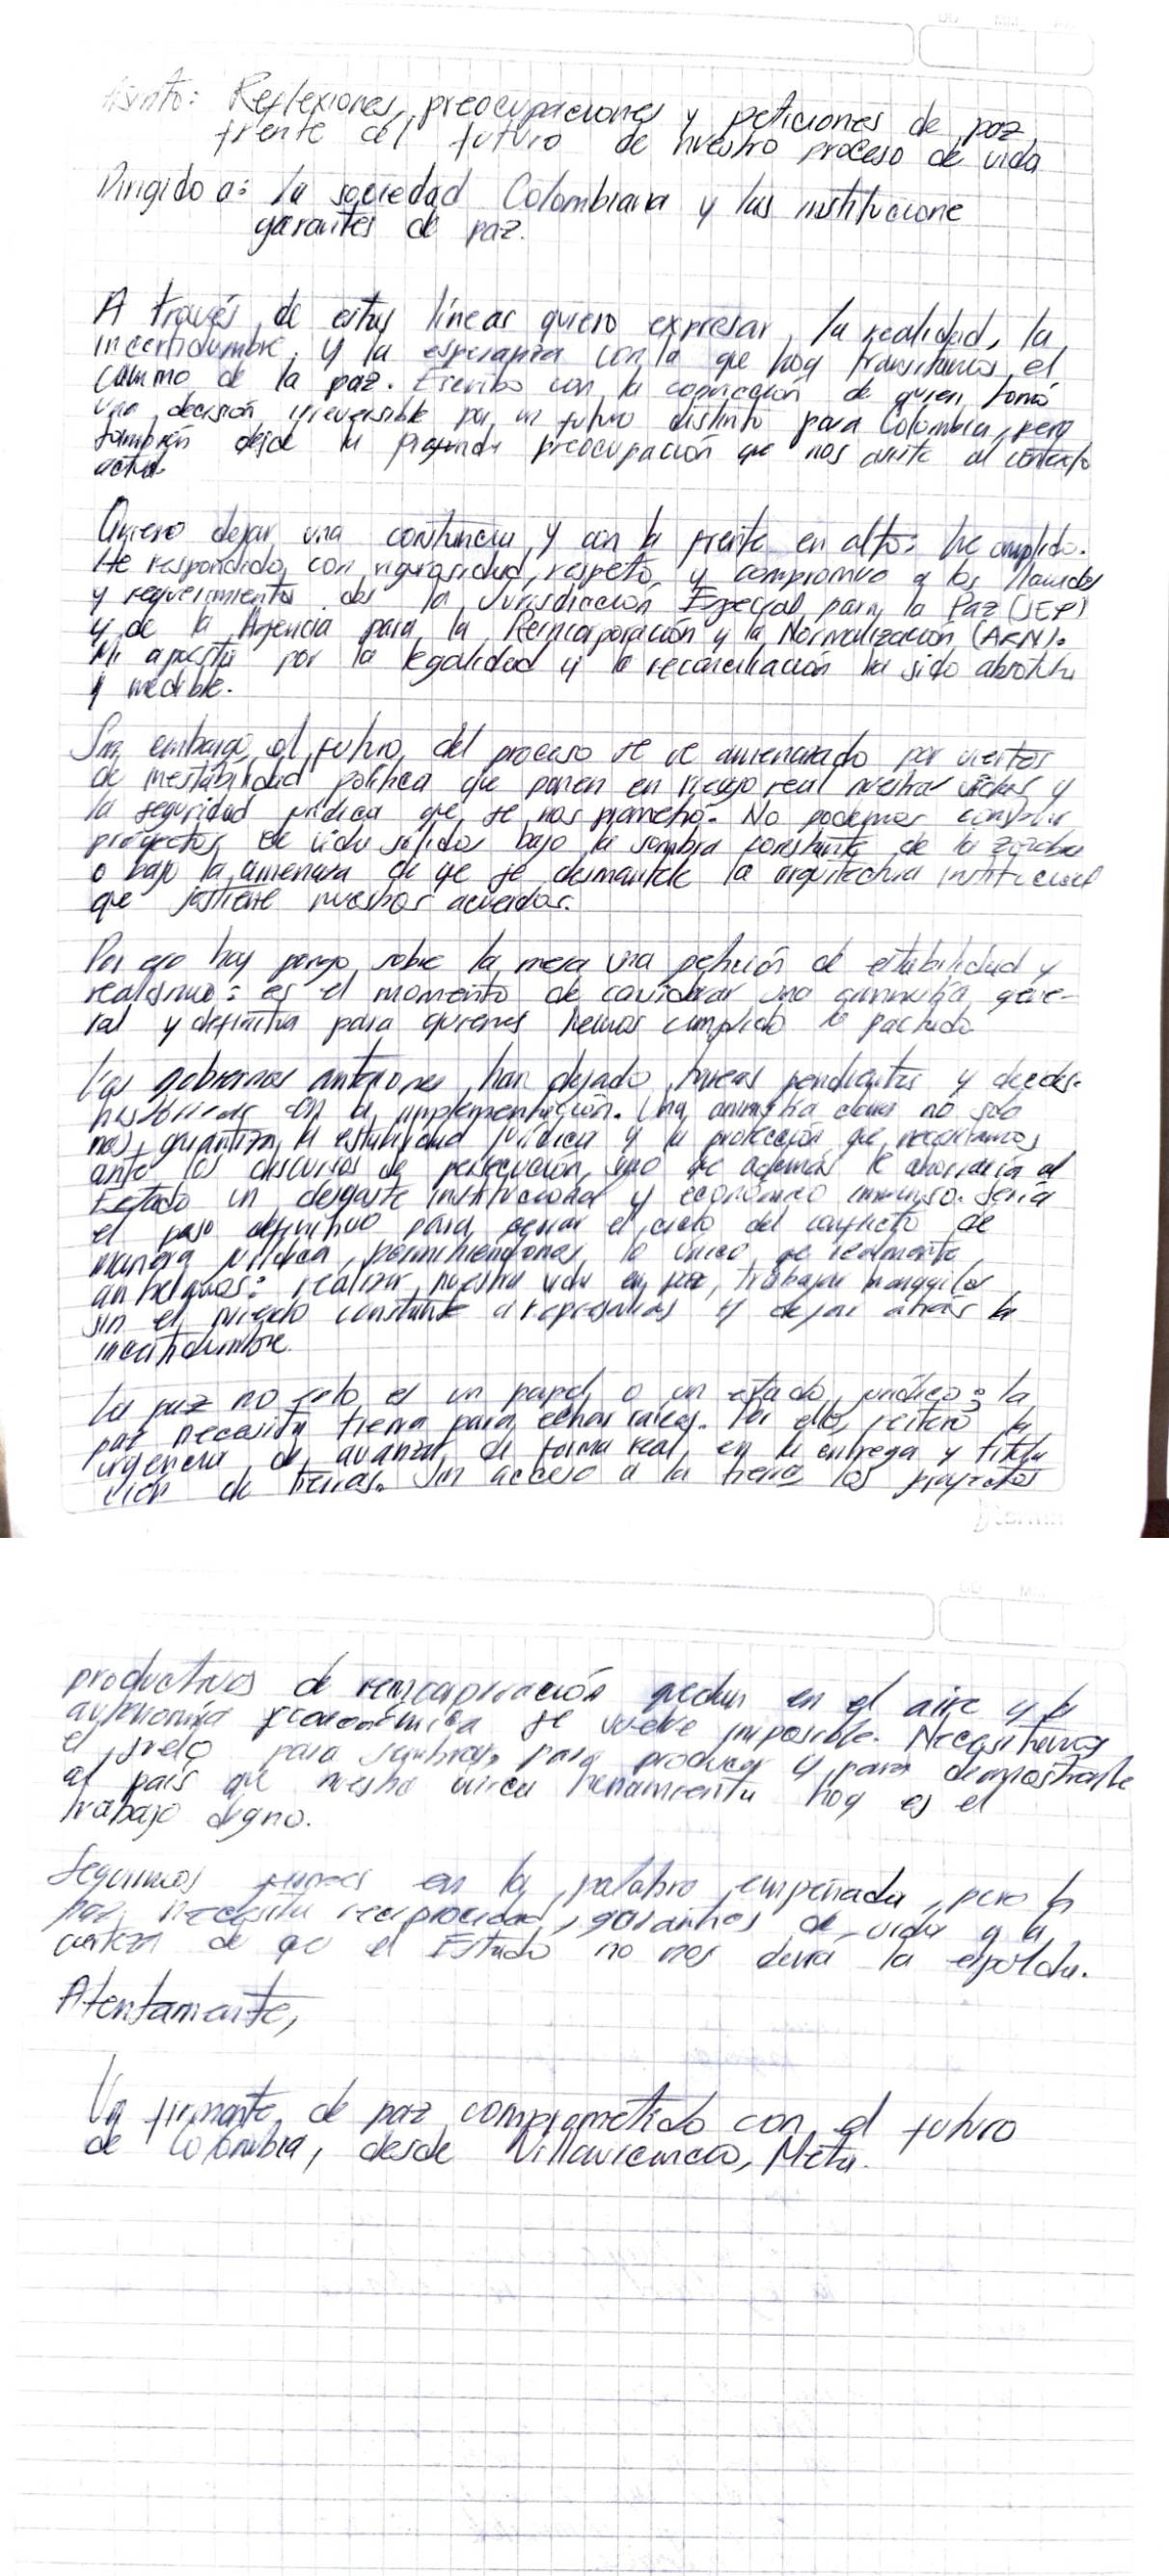 Asunto: Reflexiones, preocupaciones y peticiones de paz
frente al futuro de nuestro proceso de vida
Dirigido a: la sociedad Colombiana y las institucione
garantes de paz.
A través de estas líneas quiero expresar, la realidad, la
incertidumbre, y la esperanza con la que hoy transitamos el
camino de la paz. Escribo con la convicción de quien tomó
una decisión irreversible por un futuro distinto para Colombia, pero
también desde la profunda preocupación que nos ante el contexto
actual
Quiero dejar una constancia y con la frente en alto: he cumplido.
He respondido con rigurosidad, respeto y compromiso a los llamados
y requerimientos de la Jurisdicción Especial para la Paz (JEP)
y de la Agencia para la Reincorporación y la Normalización (ARN).
Mi apuesta por la legalidad y la reconciliación ha sido absoluta
y medible.
Sin embargo, el futuro del proceso se ve amenazado por vientos
de inestabilidad política que ponen en riesgo real nuestras vidas y
la seguridad jurídica que se nos prometió. No podemos construir
proyectos de vida sólidos bajo la sombra constante de la zozobra
o bajo la amenaza de qe se desmantele la arquitectura institucional
que sostiene nuestros acuerdos.
Por eso hoy pongo sobre la mesa una petición de estabilidad y
realismo: es el momento de considerar una amnistía gene-
ral y definitiva para quienes hemos cumplido lo pactado
Los gobiernos anteriores han dejado tareas pendientes y deudas
históricas en la implementación. Una amnistía clara no solo
nos garantiza la estabilidad jurídica y la protección que necesitamos
ante los discursos de persecución, sino que además le ahorraría al
Estado un desgaste institucional y económico inmenso. Sería
el paso definitivo para cerrar el ciclo del conflicto de
manera jurídica, permitiéndonos lo único qe realmente
anhelamos: realizar nuestra vida en paz, trabajar tranquilos
sin el miedo constante a represalias y dejar atrás la
incertidumbre.
La paz no solo es un papel o un estado jurídico: la
paz necesita tierra para echar raíces. Por ello, reitero la
urgencia de avanzar de forma real en la entrega y titula
ción de tierras. Sin acceso a la tierra los proyectos
productivos de reincorporación quedan en el aire y la
autonomía económica se vuelve imposible. Necesitamos
el suelo para sembrar, para producir y para demostrarle
al país que nuestra única herramienta hoy es el
trabajo digno.
Seguimos firmes en la palabra empeñada, pero la
paz necesita reciprocidad, garantías de vida y la
certeza de qe el Estado no nos dará la espalda.
Atentamente,
Un firmante de paz comprometido con el futuro
de Colombia, desde Villavicencio, Meta.